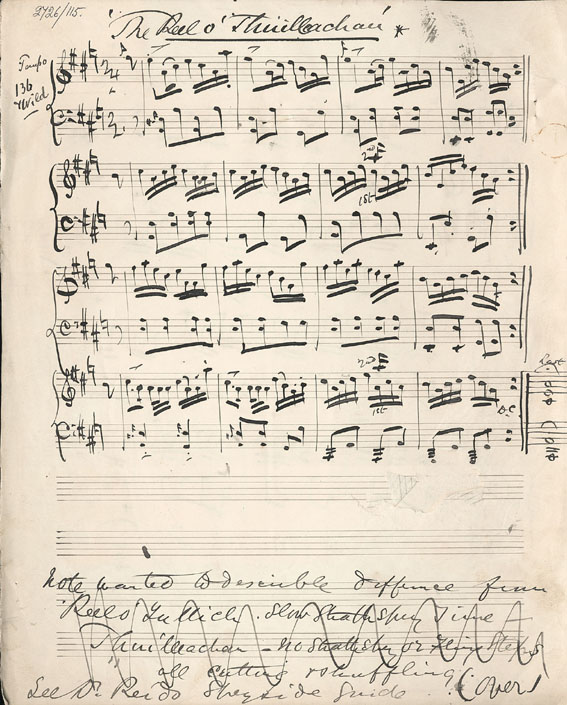 2726/115.
"The Reel o' Thuilleachan" *
Tempo
136
Wild
2nd
1st
2nd
1st
D.C.
Last
Note wanted to describle diffence from
'Reel o Tullich. Slow Strathspey Time
"Thuilleachan - no Strathspey or Fling Steps
all cutting & shuffling. (Over)
See Dr Reids Speyside Guide